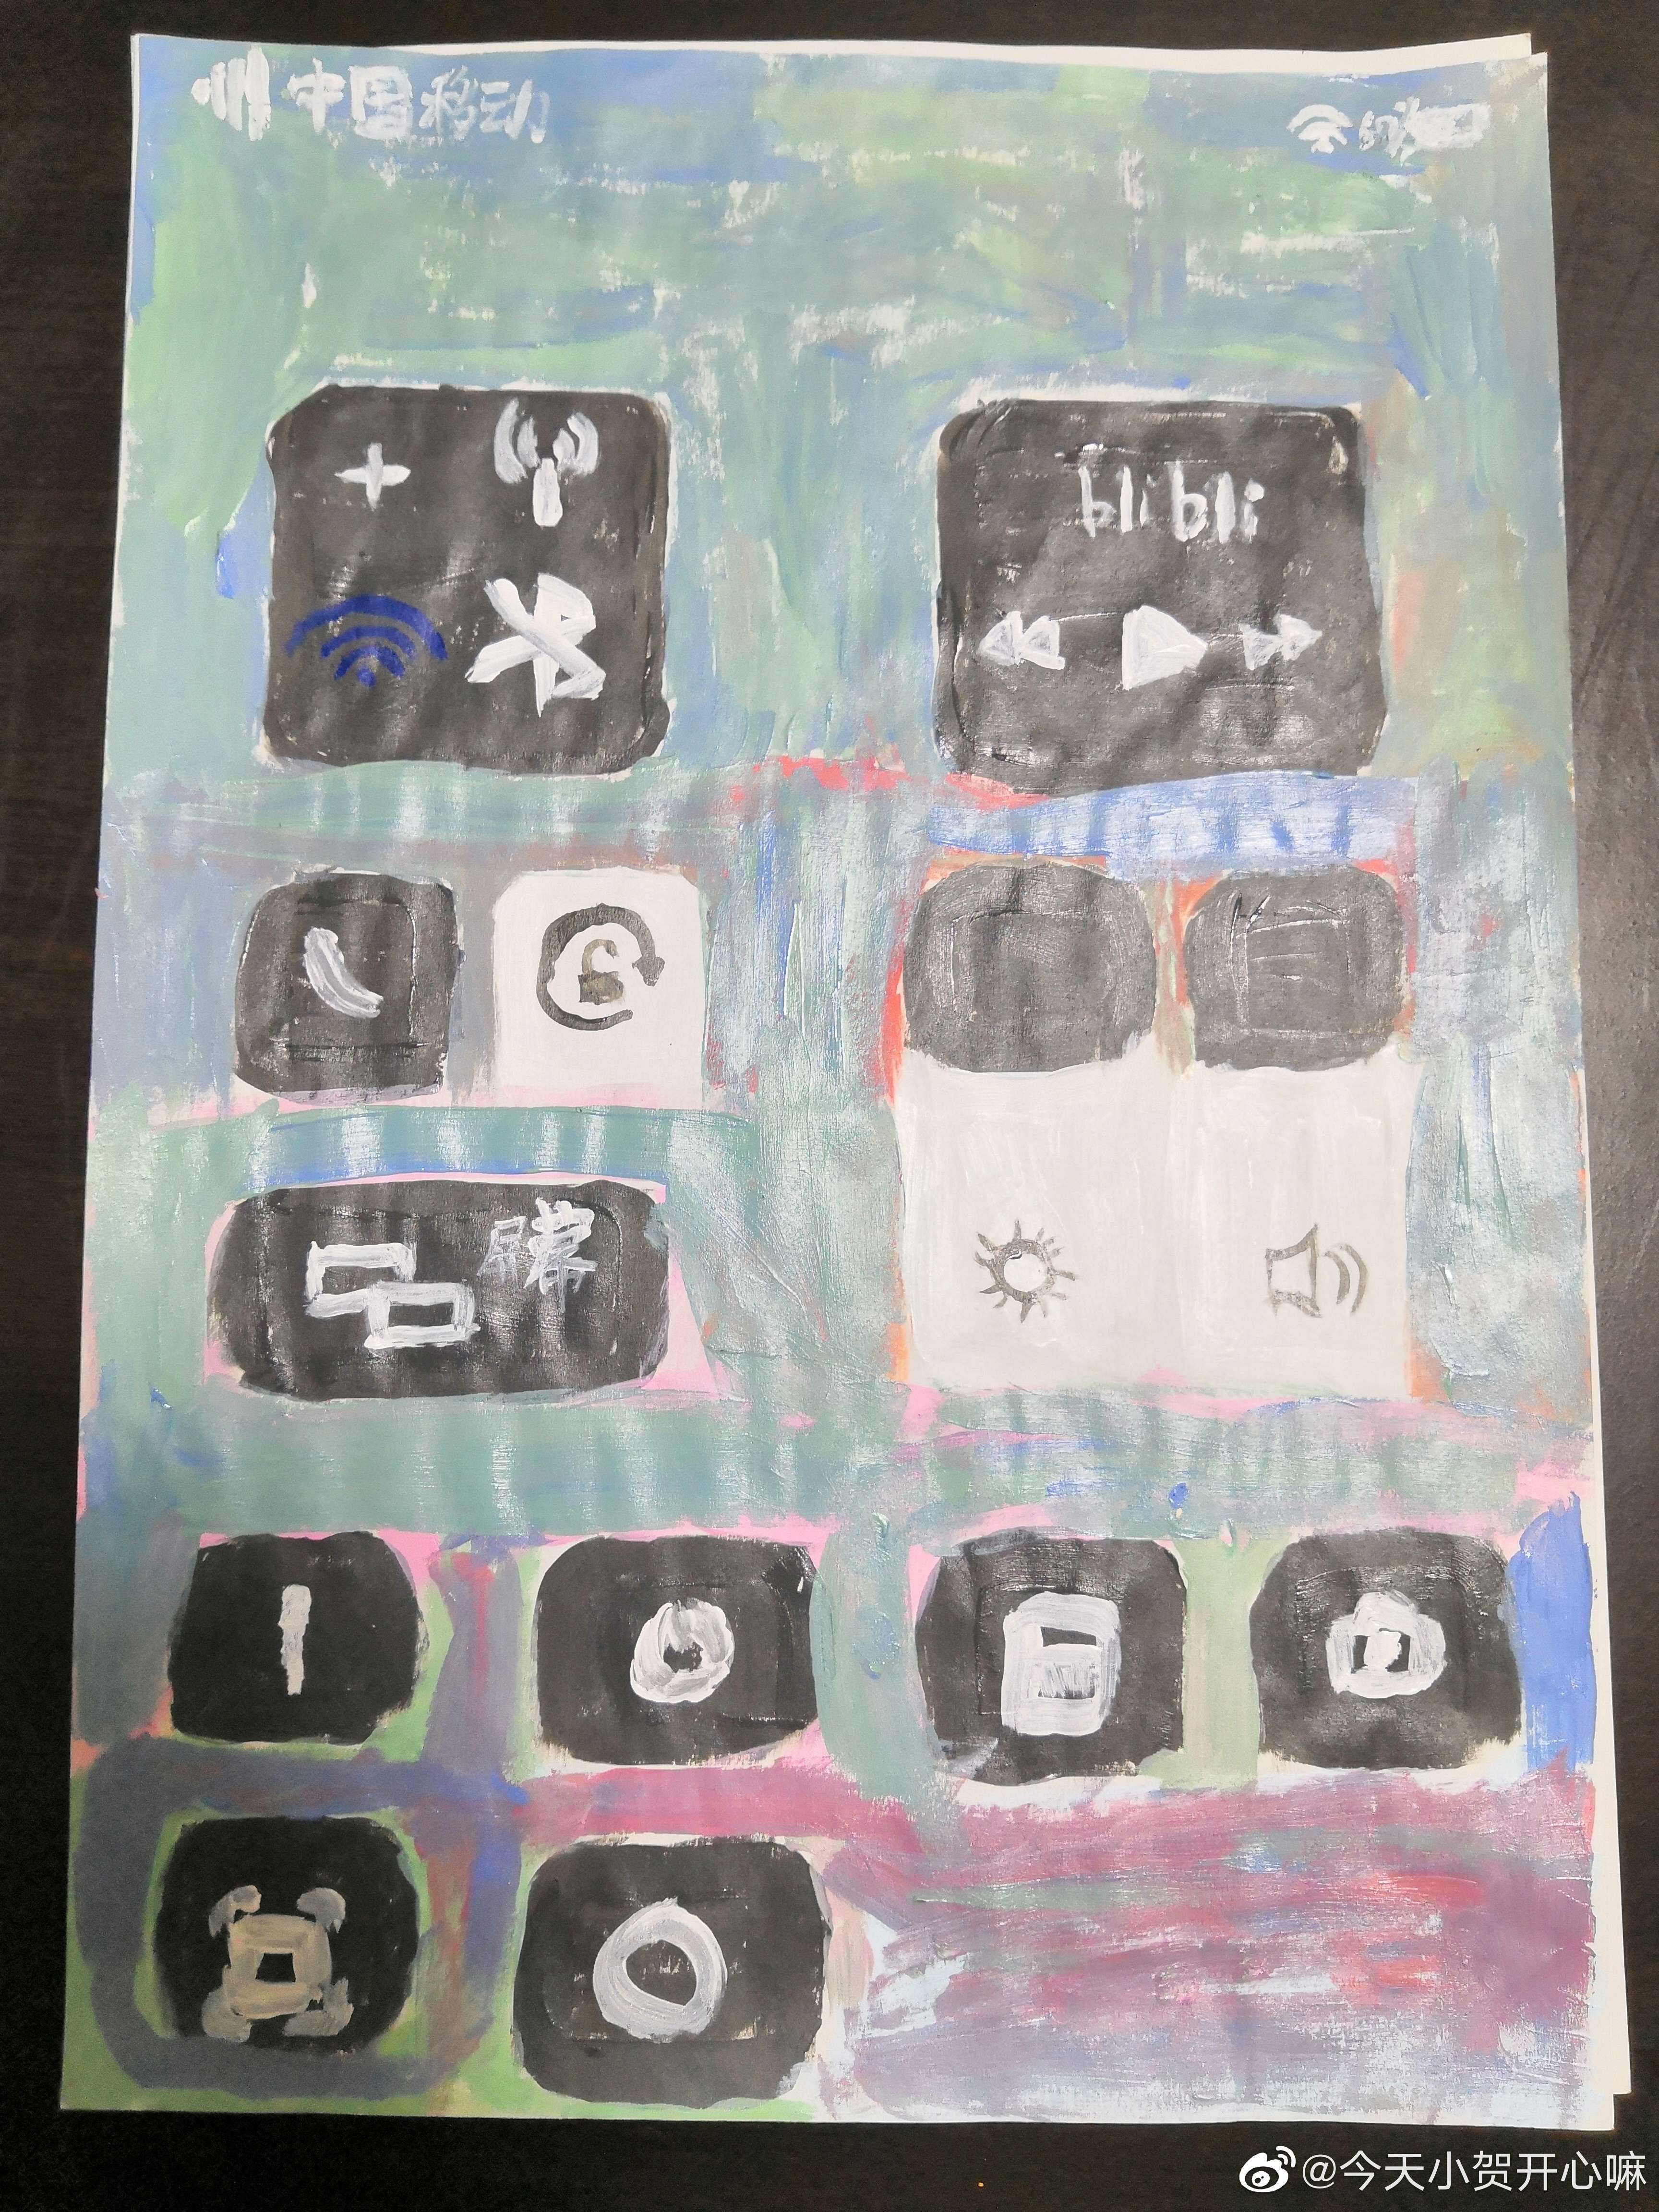 中国移动
blibli
屏幕
@今天小贺开心嘛